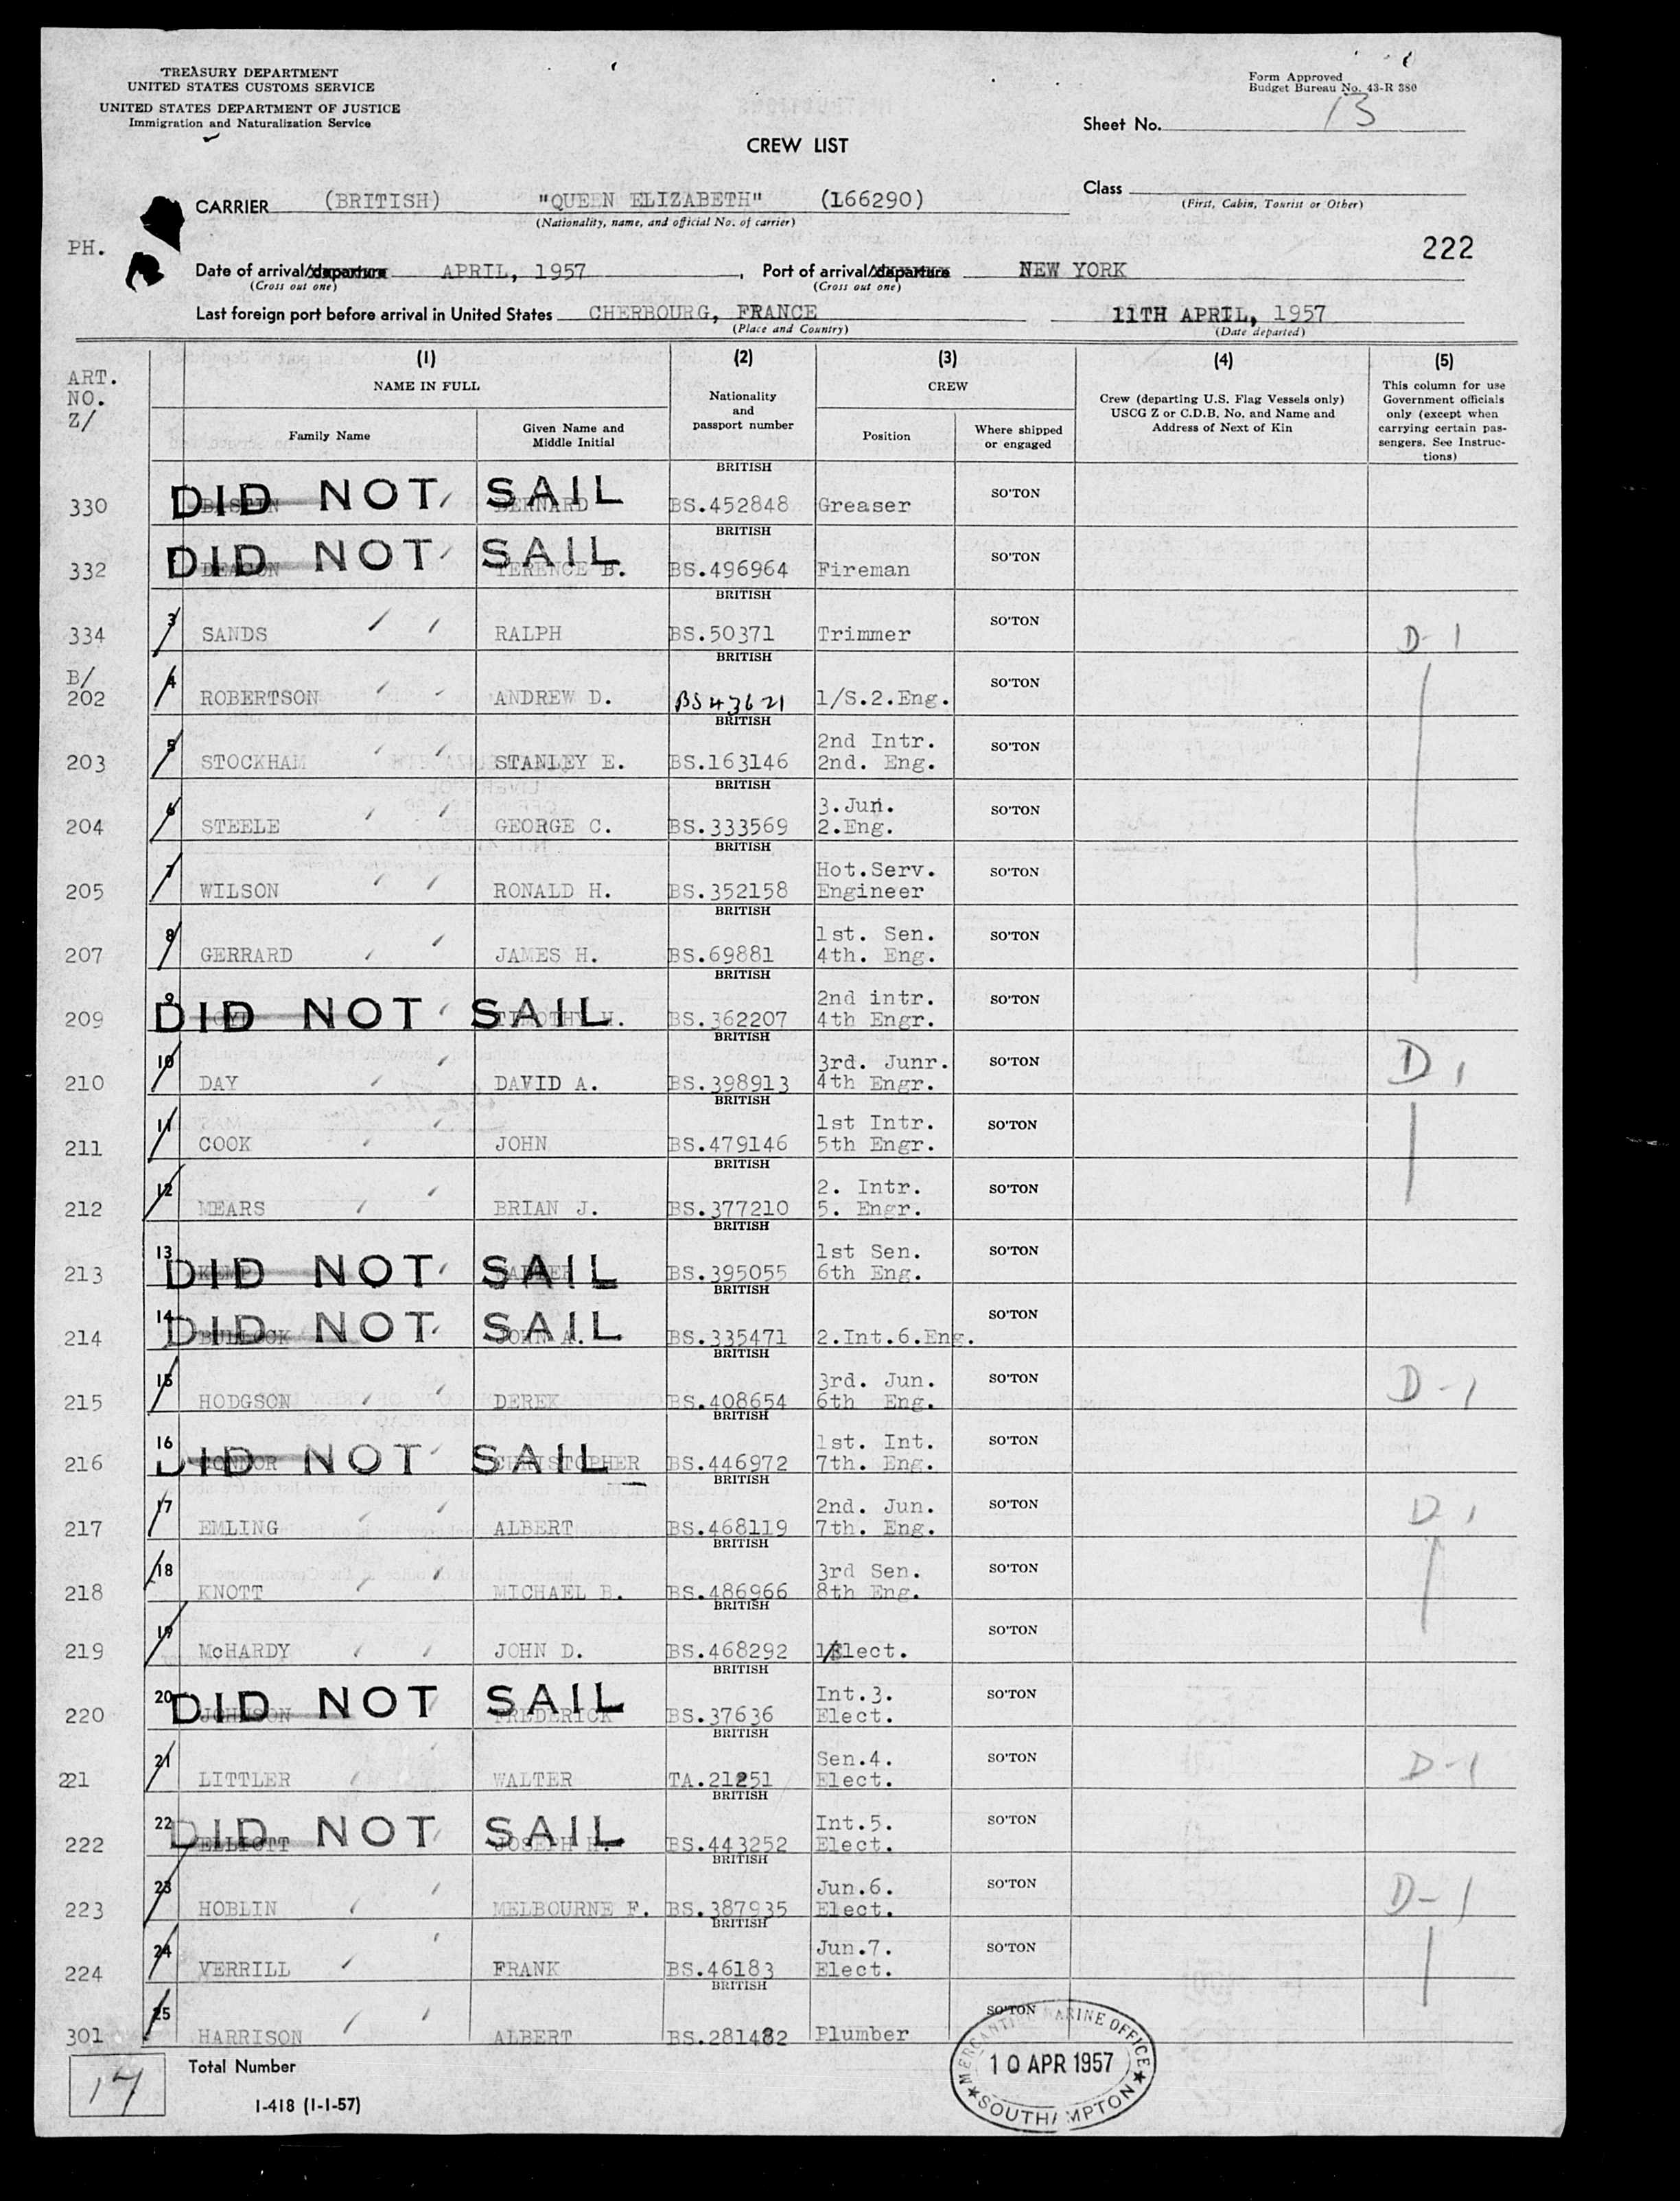 TREASURY DEPARTMENT
UNITED STATES CUSTOMS SERVICE
UNITED STATES DEPARTMENT OF JUSTICE
Immigration and Naturalization Service
Form Approved
Budget Bureau No. 43-R 380
Sheet No. 13
CREW LIST
Class
(First, Cabin, Tourist or Other)
CARRIER (BRITISH) "QUEEN ELIZABETH" (166290)
(Nationality, name, and official No. of carrier)
PH.
222
Date of arrival/departure APRIL, 1957, Port of arrival/departure NEW YORK
(Cross out one) (Cross out one)
Last foreign port before arrival in United States CHERBOURG, FRANCE 11TH APRIL, 1957
(Place and Country) (Date departed)
ART.
NO.
Z/
(1) (2) (3) (4) (5)
NAME IN FULL
Family Name
Given Name and
Middle Initial
Nationality
and
passport number
CREW
Position
Where shipped
or engaged
Crew (departing U.S. Flag Vessels only)
USCG Z or C.D.B. No. and Name and
Address of Next of Kin
This column for use
Government officials
only (except when
carrying certain pas-
sengers. See Instruc-
tions)
BRITISH
330 DID NOT SAIL BERNARD BS.452848 Greaser SO'TON
BRITISH
332 DID NOT SAIL DEACON TERENCE B. BS.496964 Fireman SO'TON
BRITISH
334 3 SANDS RALPH BS.50371 Trimmer SO'TON D-1
BRITISH
B/
202 4 ROBERTSON ANDREW D. BS43621 1/S.2.Eng. SO'TON
BRITISH
2nd Intr.
203 5 STOCKHAM STANLEY E. BS.163146 2nd. Eng. SO'TON
BRITISH
3.Jun.
204 6 STEELE GEORGE C. BS.333569 2.Eng. SO'TON
BRITISH
Hot.Serv.
205 7 WILSON RONALD H. BS.352158 Engineer SO'TON
BRITISH
1st. Sen.
207 8 GERRARD JAMES H. BS.69881 4th. Eng. SO'TON
BRITISH
2nd intr.
209 9 DID NOT SAIL TIMOTHY BS.362207 4th Engr. SO'TON
BRITISH
3rd. Junr.
210 10 DAY DAVID A. BS.398913 4th Engr. SO'TON D 1
BRITISH
1st Intr.
211 11 COOK JOHN BS.479146 5th Engr. SO'TON
BRITISH
2. Intr.
212 12 MEARS BRIAN J. BS.377210 5. Engr. SO'TON
BRITISH
1st Sen.
213 13 DID NOT SAIL BS.395055 6th Eng. SO'TON
BRITISH
214 14 DID NOT SAIL BULLOCK JOHN A. BS.335471 2.Int.6.Eng. SO'TON
BRITISH
3rd. Jun.
215 15 HODGSON DEREK BS.408654 6th Eng. SO'TON D-1
BRITISH
1st. Int.
216 16 DID NOT SAIL CHRISTOPHER BS.446972 7th. Eng. SO'TON
BRITISH
2nd. Jun.
217 17 EMLING ALBERT BS.468119 7th. Eng. SO'TON D 1
BRITISH
3rd Sen.
218 18 KNOTT MICHAEL B. BS.486966 8th Eng. SO'TON
BRITISH
219 19 McHARDY JOHN D. BS.468292 1/Elect. SO'TON
BRITISH
Int.3.
220 20 DID NOT SAIL JOHNSON FREDERICK BS.37636 Elect. SO'TON
BRITISH
Sen.4.
221 21 LITTLER WALTER TA.21251 Elect. SO'TON D-1
BRITISH
Int.5.
222 22 DID NOT SAIL ELLIOTT JOSEPH H. BS.443252 Elect. SO'TON
BRITISH
Jun.6.
223 23 HOBLIN MELBOURNE F. BS.387935 Elect. SO'TON D-1
BRITISH
Jun.7.
224 24 VERRILL FRANK BS.46183 Elect. SO'TON
BRITISH
301 25 HARRISON ALBERT BS.281482 Plumber SO'TON
17 Total Number
I-418 (1-1-57)
MERCANTILE MARINE OFFICE
10 APR 1957
SOUTHAMPTON